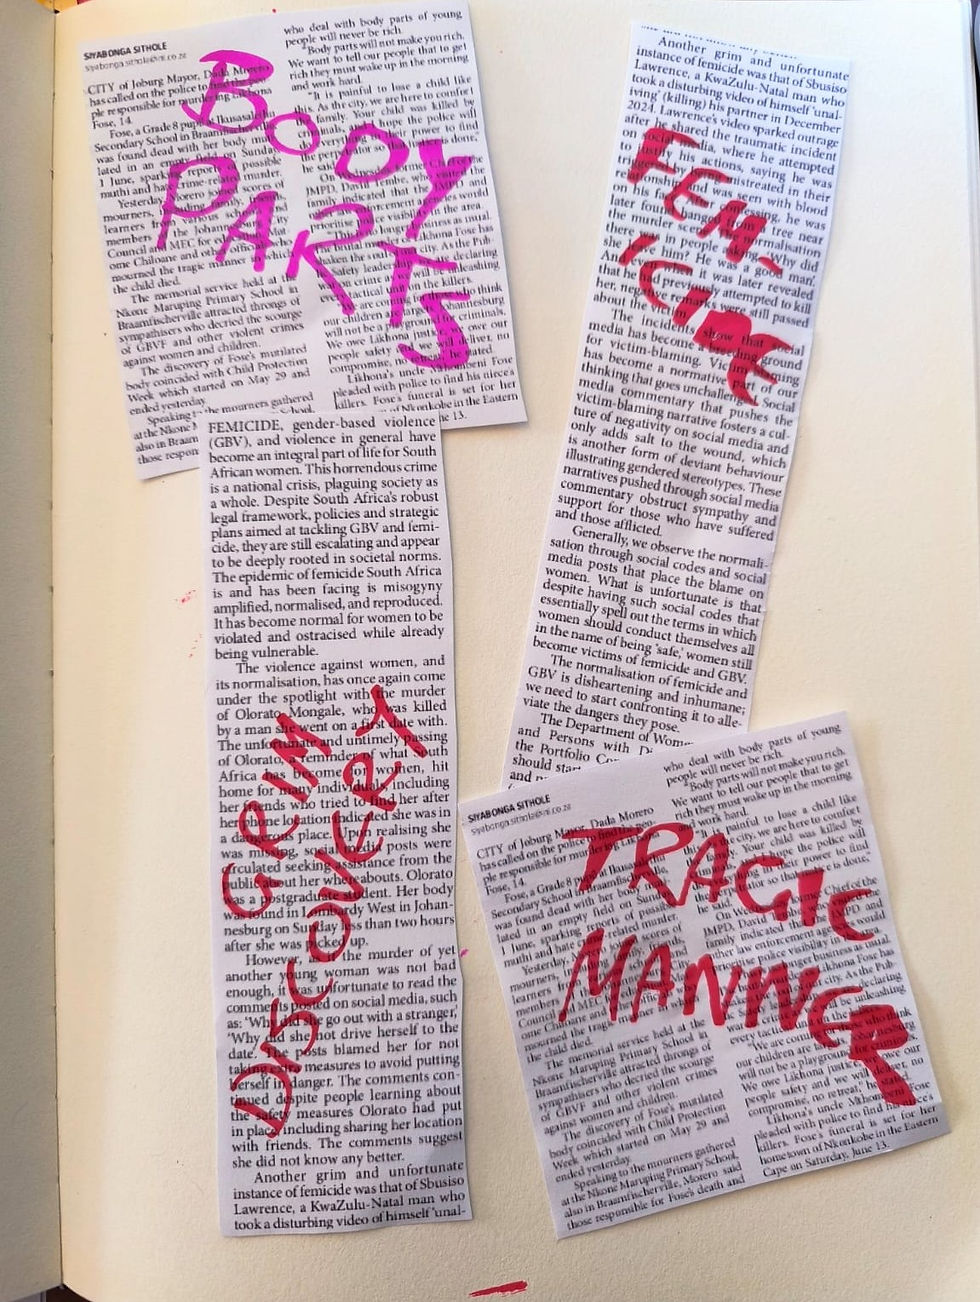 SIYABONGA SITHOLE
CITY of Joburg Mayor, Dada Morero
has called on the police to find the peo-
ple responsible for murdering Likhona
Fose, 14.
Fose, a Grade 8 pupil at Ikusasalethu
Secondary School in Braamfischerville,
was found dead with her body muti-
lated in an empty field on Sunday,
1 June, sparking reports of possible
muthi and hate crime-related murder.
Yesterday, Morero joined scores of
mourners, including family, friends,
learners from various schools and
members of the Johannesburg City
Council and MEC for
ome Chiloane and other officials who
mourned the tragic manner in which
the child died.
The memorial service held at the
Nkone Maruping Primary School in
Braamfischerville attracted throngs of
sympathisers who decried the scourge
of GBVF and other violent crimes
against women and children.
The discovery of Fose's mutilated
body coincided with Child Protection
Week which started on May 29 and
ended yesterday.
Speaking to the mourners gathered
at the Nkone
also in Braam
those respon
who deal with body parts of young
people will never be rich.
"Body parts will not make you rich.
We want to tell our people that to get
rich they must wake up in the morning
and work hard.
"It is painful to lose a child like
this. As the city, we are here to comfort
the family. Your child was killed by
criminals, and I hope the police will
do everything in their power to find
the perpetrator so that
he said.
On
JMPD, David Tembe, who visited the
family indicated that the JMPD and
other law enforcement agencies would
prioritise police visibility in the area.
This is no longer business as usual.
The brutal murder of Likhona Fose has
shaken the soul of our city. As the Pub-
lic Safety leadership, we are declaring
war on crime and we will be unleashing
every tactic on the killers.
"We are coming for those who think
our children are targets. Johannesburg
will not be a playground for criminals.
We owe Likhona justice, we owe our
people safety and we will deliver, no
compromise, no retreat," he stated.
Likhona's uncle Mkhombeni Fose
pleaded with police to find his nieces
killers. Fose's funeral is set for her
of Nkonkobe in the Eastern
13.
BODY
PARTS
FEMICIDE, gender-based violence
(GBV), and violence in general have
become an integral part of life for South
African women. This horrendous crime
is a national crisis, plaguing society as
a whole. Despite South Africa's robust
legal framework, policies and strategic
plans aimed at tackling GBV and femi-
cide, they are still escalating and appear
to be deeply rooted in societal norms.
The epidemic of femicide South Africa
is and has been facing is misogyny
amplified, normalised, and reproduced.
It has become normal for women to be
violated and ostracised while already
being vulnerable.
The violence against women, and
its normalisation, has once again come
under the spotlight with the murder
of Olorato Mongale, who was killed
by a man she went on a first date with.
The unfortunate and untimely passing
of Olorato, a reminder of what South
Africa has become for women, hit
home for many individuals including
her friends who tried to find her after
her phone location indicated she was in
a dangerous place. Upon realising she
was missing, social media posts were
circulated seeking assistance from the
public about her whereabouts. Olorato
was a postgraduate student. Her body
was found in Lombardy West in Johan-
nesburg on Sunday less than two hours
after she was picked up.
However, as if the murder of yet
another young woman was not bad
enough, it was unfortunate to read the
comments posted on social media, such
as: 'Why did she go out with a stranger,'
'Why did she not drive herself to the
date.' The posts blamed her for not
taking extra measures to avoid putting
herself in danger. The comments con-
tinued despite people learning about
the safety measures Olorato had put
in place including sharing her location
with friends. The comments suggest
she did not know any better.
Another grim and unfortunate
instance of femicide was that of Sbusiso
Lawrence, a KwaZulu-Natal man who
took a disturbing video of himself 'unal-
GRIM
DISCOVERY
Another grim and unfortunate
instance of femicide was that of Sbusiso
Lawrence, a KwaZulu-Natal man who
took a disturbing video of himself 'unal-
iving' (killing) his partner in December
2024. Lawrence's video sparked outrage
after he shared the traumatic incident
on social media, where he attempted
to justify his actions, saying he was
triggered by being mistreated in their
relationship and was seen with blood
on his face. confessing, he was
later found hanged from a tree near
the murder scene. normalisation
there was in people asking, 'Why did
she leave him? He was a good man.'
And even when it was later revealed
that he had previously attempted to kill
her, negative remarks were still passed
about the victim.
The incidents show that social
media has become a breeding ground
for victim-blaming. Victim blaming
has become a normative part of our
thinking that goes unchallenged. Social
media commentary that pushes the
victim-blaming narrative fosters a cul-
ture of negativity on social media and
only adds salt to the wound, which
is another form of deviant behaviour
illustrating gendered stereotypes. These
narratives pushed through social media
commentary obstruct sympathy and
support for those who have suffered
and those afflicted.
Generally, we observe the normali-
sation through social codes and social
media posts that place the blame on
women. What is unfortunate is that
despite having such social codes that
essentially spell out the terms in which
women should conduct themselves all
in the name of being 'safe,' women still
become victims of femicide and GBV.
The normalisation of femicide and
GBV is disheartening and inhumane;
we need to start confronting it to alle-
viate the dangers they pose.
The Department of Women
and Persons with Di
the Portfolio Co
should start
and
FEM-
ICIDE
SIYABONGA SITHOLE
CITY of Joburg Mayor, Dada Morero
has called on the police to find the peo-
ple responsible for murdering Likhona
Fose, 14.
Fose, a Grade 8 pupil at Ikusasalethu
Secondary School in Braamfischerville,
was found dead with her body muti-
lated in an empty field on Sunday,
1 June, sparking reports of possible
muthi and hate crime related murder.
Yesterday, Morero joined scores of
mourners, including family, friends,
learners from various schools and
members of the Johannesburg City
Council and MEC for
ome Chiloane and other officials who
mourned the tragic manner in which
the child died.
The memorial service held at the
Nkone Maruping Primary School in
Braamfischerville attracted throngs of
sympathisers who decried the scourge
of GBVF and other violent crimes
against women and children.
The discovery of Fose's mutilated
body coincided with Child Protection
Week which started on May 29 and
ended yesterday.
Speaking to the mourners gathered
at the Nkone Maruping Primary School,
also in Braamfischerville, Morero said
those responsible for Fose's death and
who deal with body parts of young
people will never be rich.
"Body parts will not make you rich.
We want to tell our people that to get
rich they must wake up in the morning
and work hard.
"It is painful to lose a child like
this. As the city, we are here to comfort
the family. Your child was killed by
criminals, and I hope the police will
do everything in their power to find
the perpetrator so that justice is done,"
he said.
On Wednesday, Chief of the
JMPD, David Tembe, who visited the
family indicated that the JMPD and
other law enforcement agencies would
prioritise police visibility in the area.
This is no longer business as usual.
The brutal murder of Likhona Fose has
shaken the soul of our city. As the Pub-
lic Safety leadership, we are declaring
war on crime and we will be unleashing
every tactic on the killers.
"We are coming for those who think
our children are targets. Johannesburg
will not be a playground for criminals.
We owe Likhona justice, we owe our
people safety and we will deliver, no
compromise, no retreat," he stated.
Likhona's uncle Mkhombeni Fose
pleaded with police to find his nieces
killers. Fose's funeral is set for her
hometown of Nkonkobe in the Eastern
Cape on Saturday, June 13.
TRAGIC
MANNER